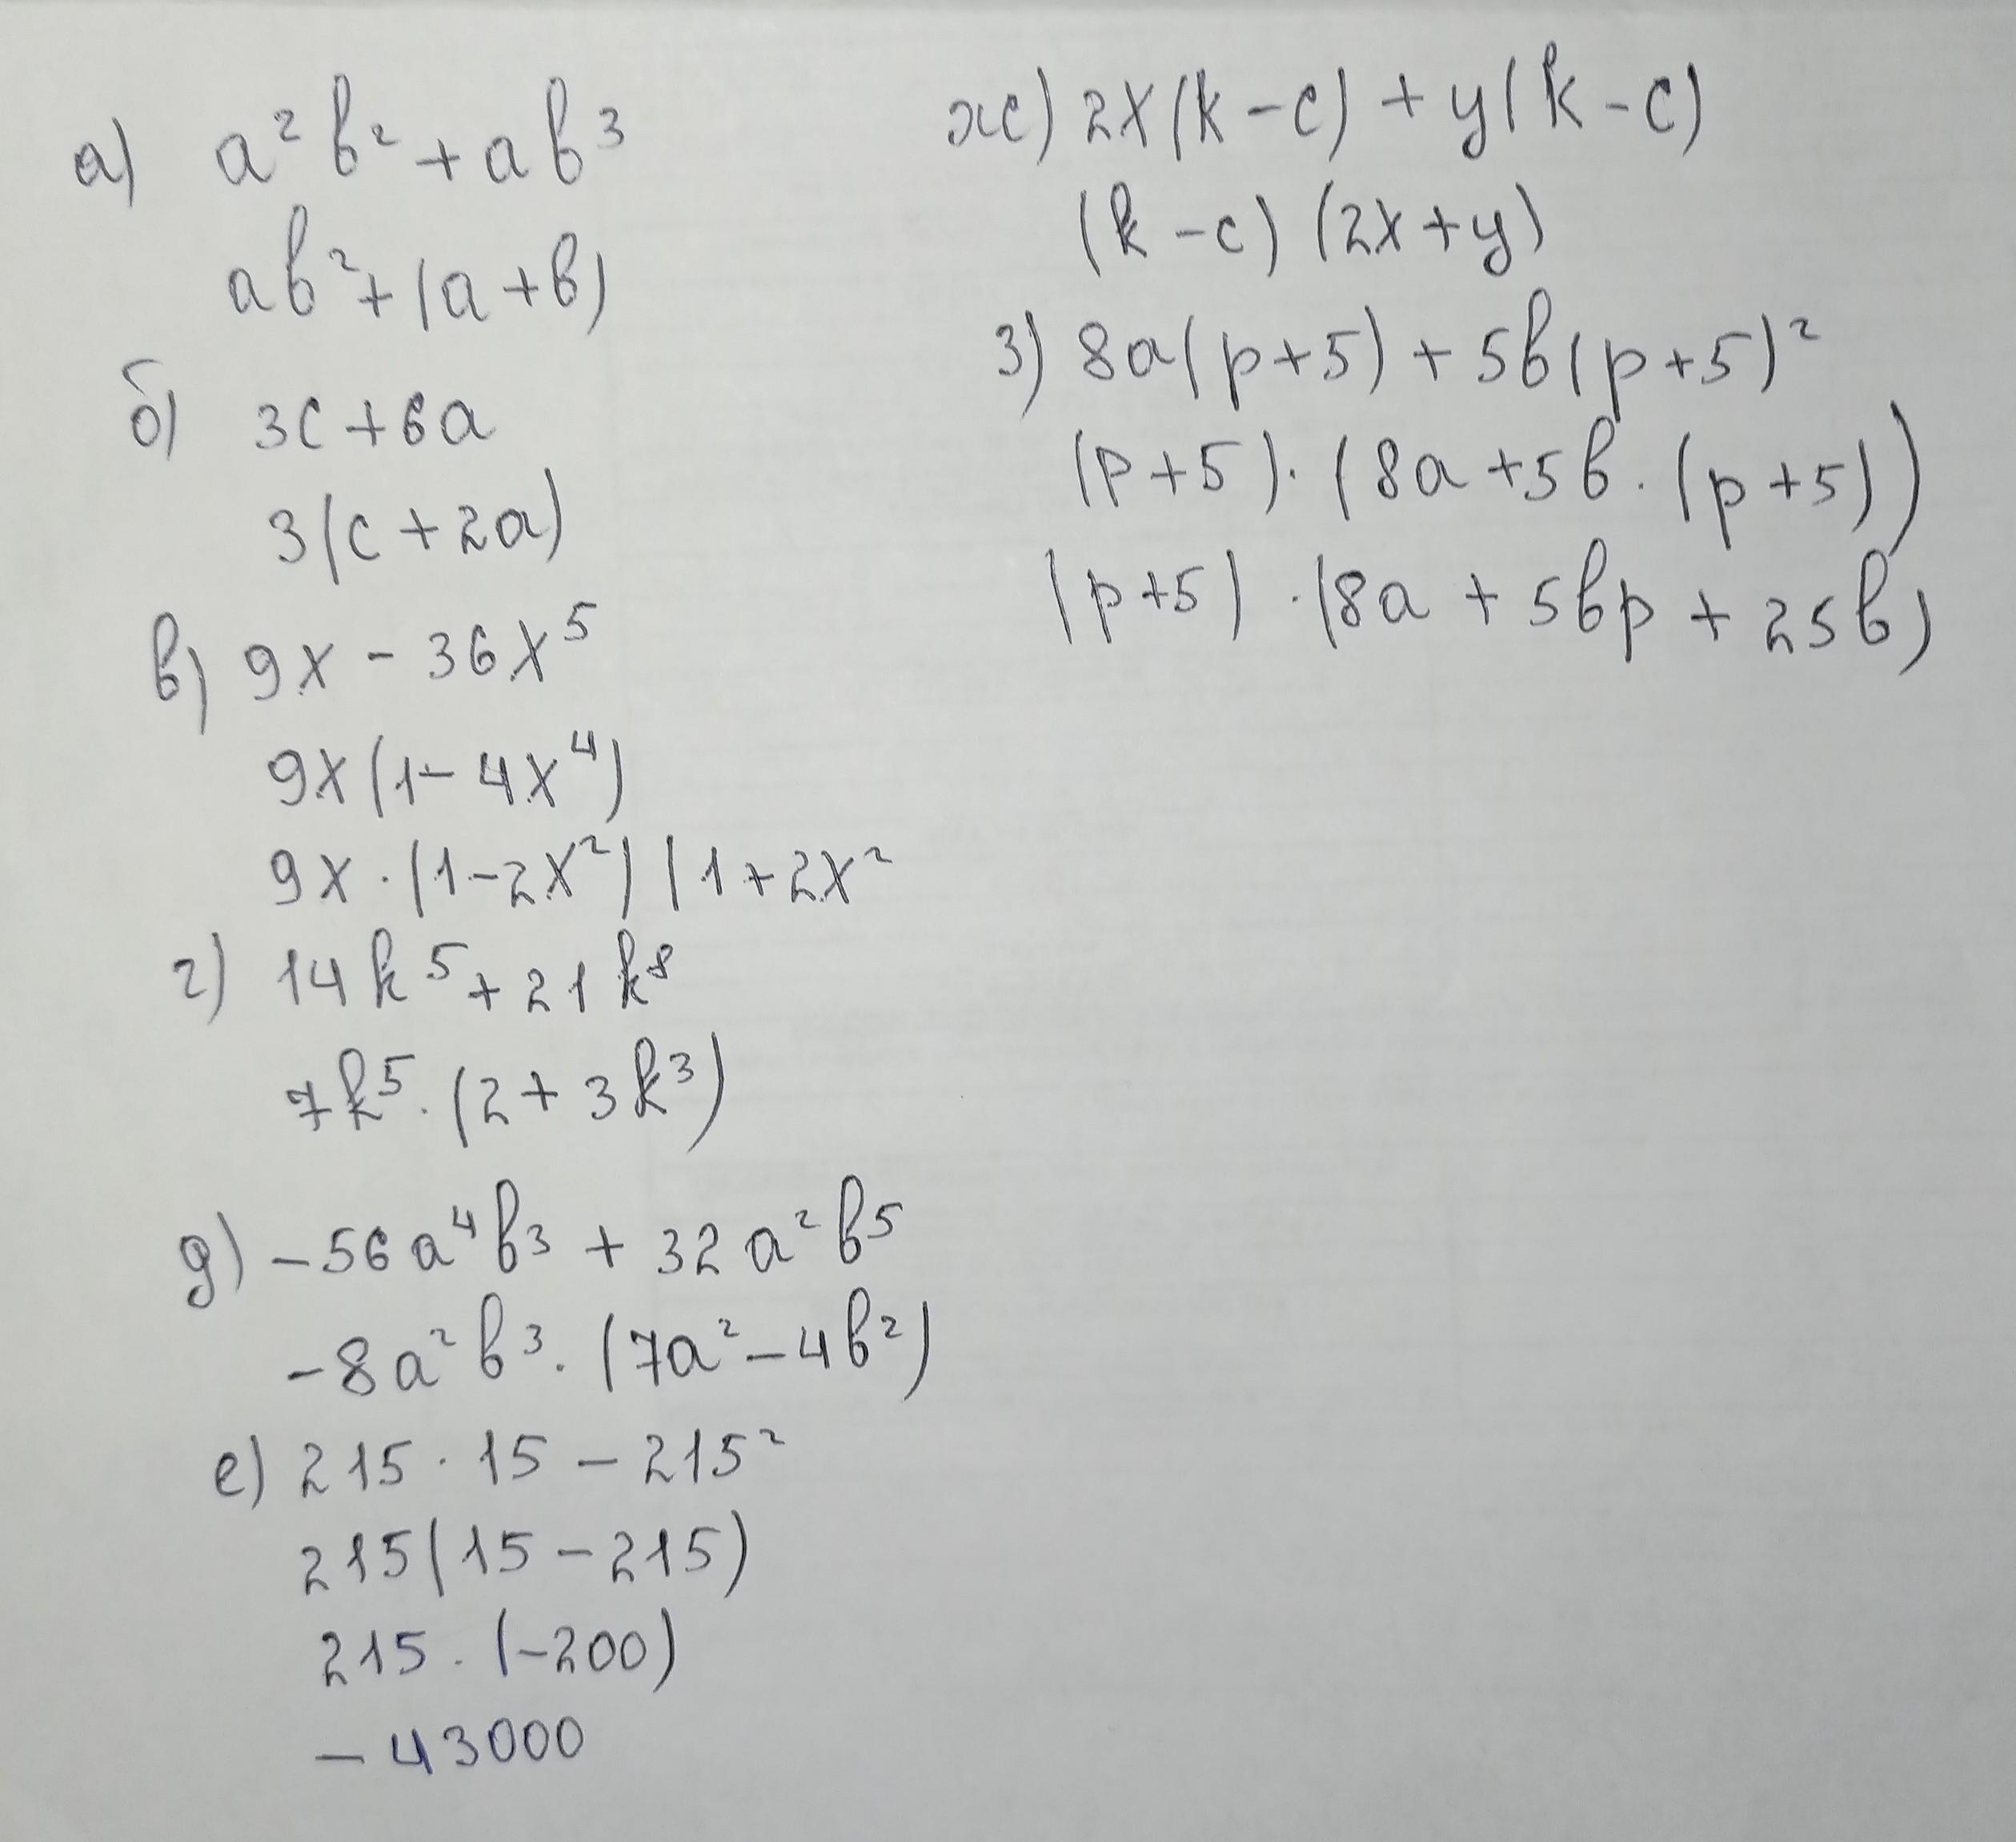 а) a²b² + ab³
ab² + (a + b)
б) 3c + 6a
3(c + 2a)
в) 9x - 36x⁵
9x(1 - 4x⁴)
9x · (1 - 2x²)(1 + 2x²
г) 14k⁵ + 21k⁸
7k⁵ · (2 + 3k³)
д) -56a⁴b³ + 32a²b⁵
-8a²b³ · (7a² - 4b²)
е) 215 · 15 - 215²
215(15 - 215)
215 · (-200)
- 43000
ж) 2x(k - c) + y(k - c)
(k - c) (2x + y)
з) 8a(p + 5) + 5b(p + 5)²
(p + 5) · (8a + 5b · (p + 5))
(p + 5) · (8a + 5bp + 25b)